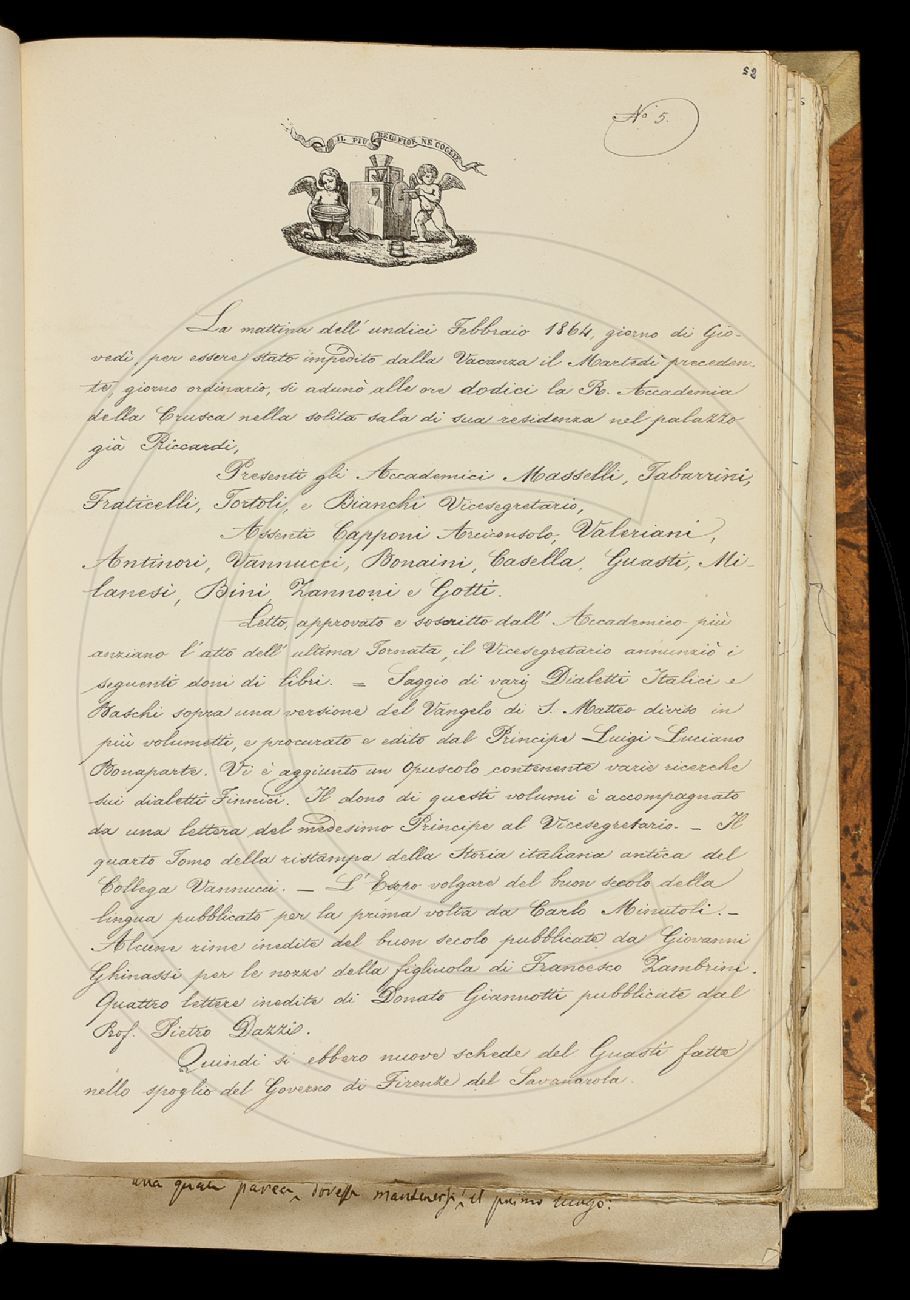 52
N.º 5.
IL PIÙ BEL FIOR NE COGLIE
La mattina dell' undici Febbraio 1864, giorno di Gio-
vedì, per essere stato impedito dalla Vacanza il Martedì preceden-
te, giorno ordinario, si adunò alle ore dodici la R. Accademia
della Crusca nella solita sala di sua residenza nel palazzo
già Riccardi,
Presenti gli Accademici Masselli, Tabarrini,
Fraticelli, Tortoli, e Bianchi Vicesegretario,
Assenti Capponi Arciconsolo, Valeriani,
Antinori, Vannucci, Bonaini, Casella, Guasti, Mi-
lanesi, Bini, Zannoni e Gotti.
Letto, approvato e soscritto dall' Accademico più
anziano l' atto dell' ultima Tornata, il Vicesegretario annunziò i
seguenti doni di libri. = Saggio di varj Dialetti Italici e
Baschi sopra una versione del Vangelo di S. Matteo diviso in
più volumetti, e procurato e edito dal Principe Luigi Luciano
Bonaparte. Vi è aggiunto un Opuscolo contenente varie ricerche
sui dialetti Finnici. Il dono di questi volumi è accompagnato
da una lettera del medesimo Principe al Vicesegretario. – Il
quarto Tomo della ristampa della Storia italiana antica del
Collega Vannucci. – L' Esopo volgare del buon secolo della
lingua pubblicato per la prima volta da Carlo Minutoli. –
Alcune rime inedite del buon secolo pubblicate da Giovanni
Ghinassi per le nozze della figliuola di Francesco Zambrini.
Quattro lettere inedite di Donato Giannotti pubblicate dal
Prof. Pietro Dazzi.
Quindi si ebbero nuove schede del Guasti fatte
nello spoglio del Governo di Firenze del Savonarola.
una parea dovesse mantenersi il primo luogo.